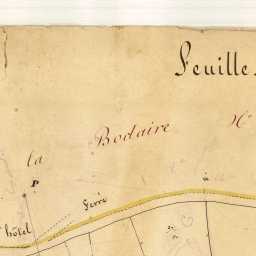 Feuille
la Bodaire
P.
ferre
hôtel